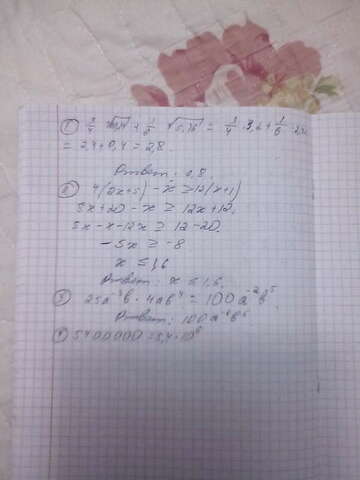 ① 3/4 + 1/6 √5,76 = 3/4 · 3,2 + 1/6 · 2,4
= 2,4 + 0,4 = 2,8.
Ответ: 0,8.
② 4(2x+5) - x ≥ 12(x+1)
8x+20 - x ≥ 12x+12.
8x-x-12x ≥ 12-20.
-5x ≥ -8
x ≤ 1,6
Ответ: x ≤ 1,6.
③ 25a⁻³b · 4ab⁴ = 100a⁻²b⁵
Ответ: 100a⁻²b⁵
④ 5400000 = 5,4·10⁶